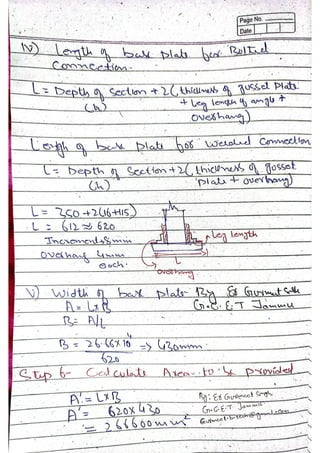 Page No.
Date
IV) Length of base plate for Bolted
Connection.
L = Depth of Section + 2 (thickness of gusset plate
(h) + leg length of angle +
overhang)
Length of base plate for welded connection
L = Depth of Section + 2 (thickness of gusset
(h) plate + overhang)
L = 350 + 2(16+115)
L = 612 ≈ 620
h
Leg length
L
overhang
V) Width of base plate By Er Gurmeet Singh
A = LxB G.C.E.T Jammu
B = A/L
B = 26.66x10⁴ => 430mm
620
Step 6- Calculate Area to be provided
A' = LxB By: Er Gurmeet Singh
A' = 620x430 G.C.E.T Jammu
= 266600mm²